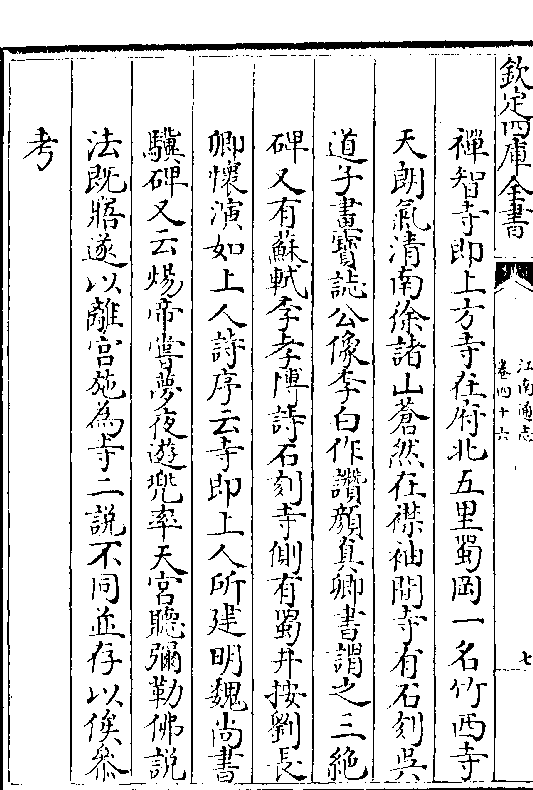 欽定四庫全書
江南通志
卷四十六
七
禪智寺即上方寺在府北五里蜀岡一名竹西寺
天朗氣清南徐諸山蒼然在襟袖間寺有石刻吳
道子畫寶誌公像李白作讚顔真卿書謂之三絶
碑又有蘇軾李孝博詩石刻寺側有蜀井按劉長
卿懷演如上人詩序云寺即上人所建明魏尚書
驥碑又云煬帝嘗夢夜遊兜率天宮聽彌勒佛説
法既寤遂以離宮施為寺二説不同並存以俟叅
考